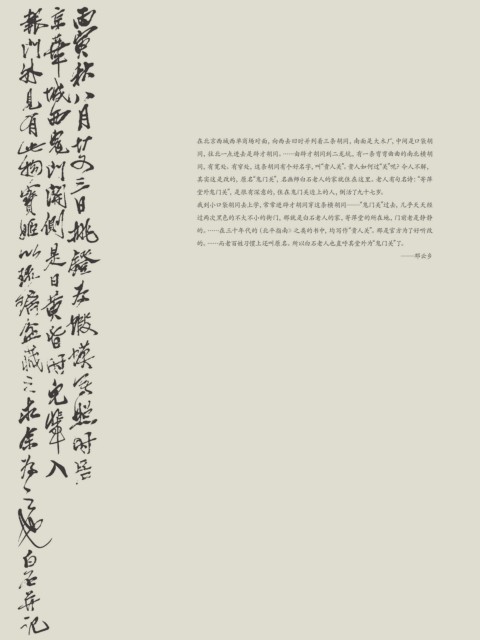 丙寅秋八月廿又三日挑镫存賢漢写照时居
京華城西鬼门関側是日黄昏时儿辈入
報门外见有此物寶姬以孫病盦藏之求余为之也白石并记
在北京西城西单商场对面，向西去四时并列着三条胡同，南面是大木厂，中间是口袋胡
同，往北一点进去是辟才胡同。……由辟才胡同到二龙坑，有一条弯弯曲曲的南北横胡
同，有宽处，有窄处，这条胡同有个好名字，叫“贵人关”，贵人如何过“关”呢？令人不解，
其实这是改的，原名“鬼门关”，是画师白石老人的家就住在这里。老人有句名诗：“寄萍
堂外鬼门关”，是很有深意的，住在鬼门关边上的人，倒活了九十七岁。
我到小口袋胡同去上学，常常进辟才胡同穿这条胡同……“鬼门关”过去，几乎天天经
过两边黑色的不大不小的街门，那就是白石老人的家，寄萍堂的所在地，门前老是静静
的。……在三十年代的《北平指南》之类的书中，均写作“贵人关”，那是官方为了好听改
的。……而老百姓习惯上还叫原名，所以白石老人也直呼其堂外为“鬼门关”了。
——邓云乡